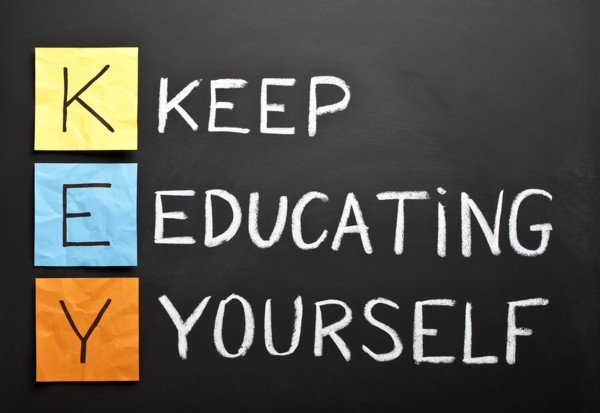 K KEEP
E EDUCATiNG
Y YOURSELF